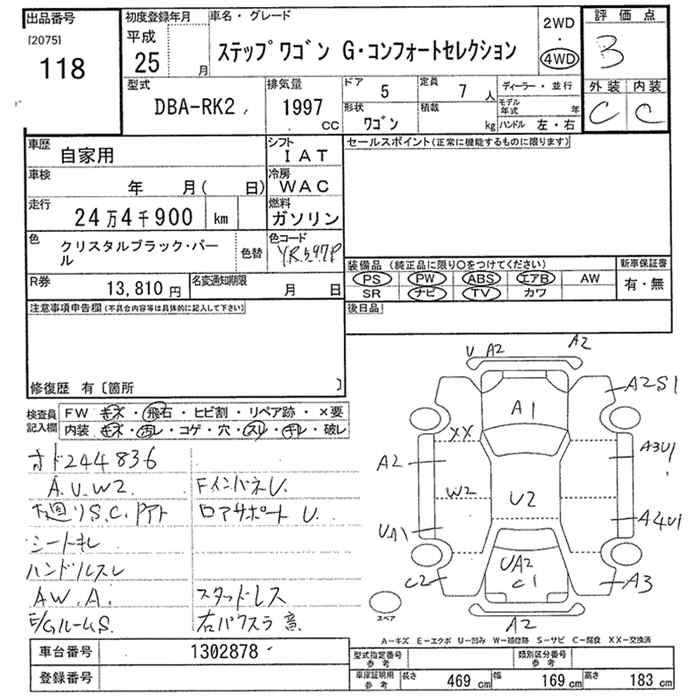 出品番号
[2075]
118
初度登録年月
平成
25 月
車名・グレード
ステップワゴン G・コンフォートセレクション
2WD
・
4WD
評価点
3
外装 内装
C C
型式
DBA-RK2
排気量
1997
CC
ドア 5
定員 7 人
形状 ワゴン
積載 kg
ディーラー・並行
モデル年式 年
ハンドル 左・右
車歴
自家用
シフト
IAT
車検
年 月( 日)
冷房
WAC
走行
24万4千900 km
燃料
ガソリン
色
クリスタルブラック・パール
色替
色コード
YR597P
R券
13,810 円
名変通知期限
月 日
セールスポイント(正常に機能するものに限ります)
装備品(純正品に限り○をつけてください)
PS PW ABS エアB AW
SR ナビ TV カワ
新車保証書
有・無
注意事項申告欄(不具合内容等は具体的に記入して下さい)
後日品
修復歴 有〔箇所 〕
検査員記入欄
FW キズ・飛石・ヒビ割・リペア跡・×要
内装 キズ・汚レ・コゲ・穴・スレ・キレ・破レ
オド244836
A.U.W2
下廻リS.C.
シートキレ
ハンドルスレ
AW.A.
E/GルームS.
FインパネU.
ロアサポートU.
スタッドレス
右パワスラ
U A2 A2
A2S1
A1
XX
A2
A3U1
W2
U2
UA1
A4U1
UA2
C1
C2
A3
A2
スペア
A-キズ E-エクボ U-凹み W-補修跡 S-サビ C-腐食 XX-交換済
車台番号
1302878
登録番号
型式指定番号
参考
類別区分番号
参考
車庫証明用
参考
長さ 469 cm
幅 169 cm
高さ 183 cm